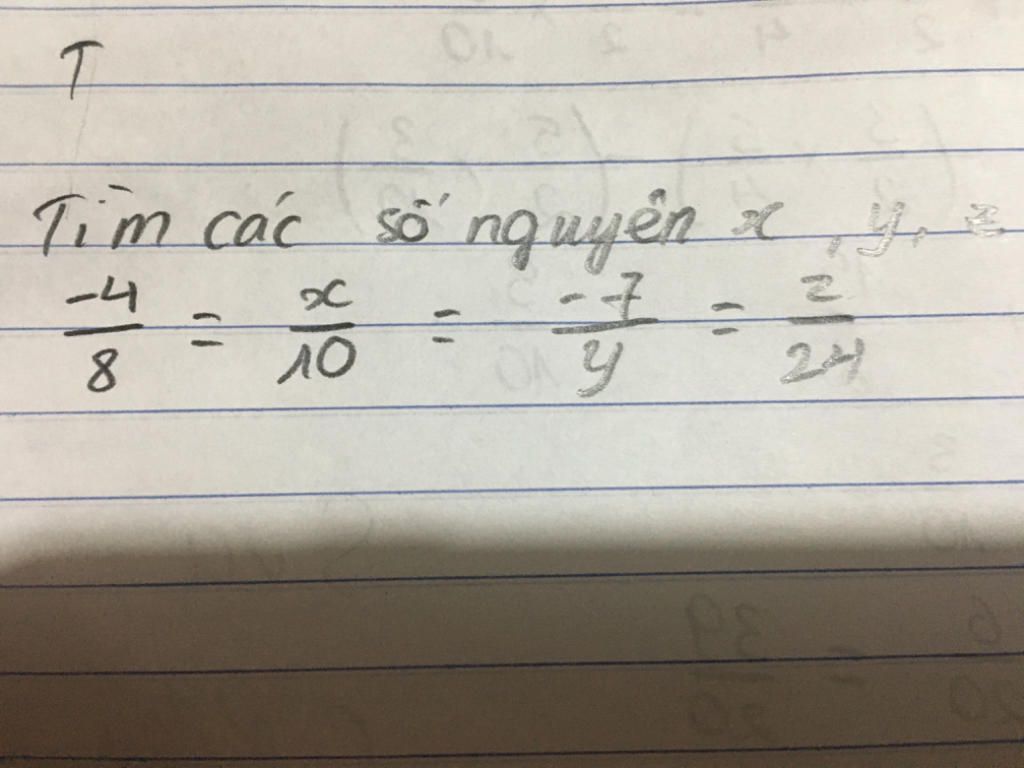 T
Tìm các số nguyên x, y, z
-4/8 = x/10 = -7/y = z/24